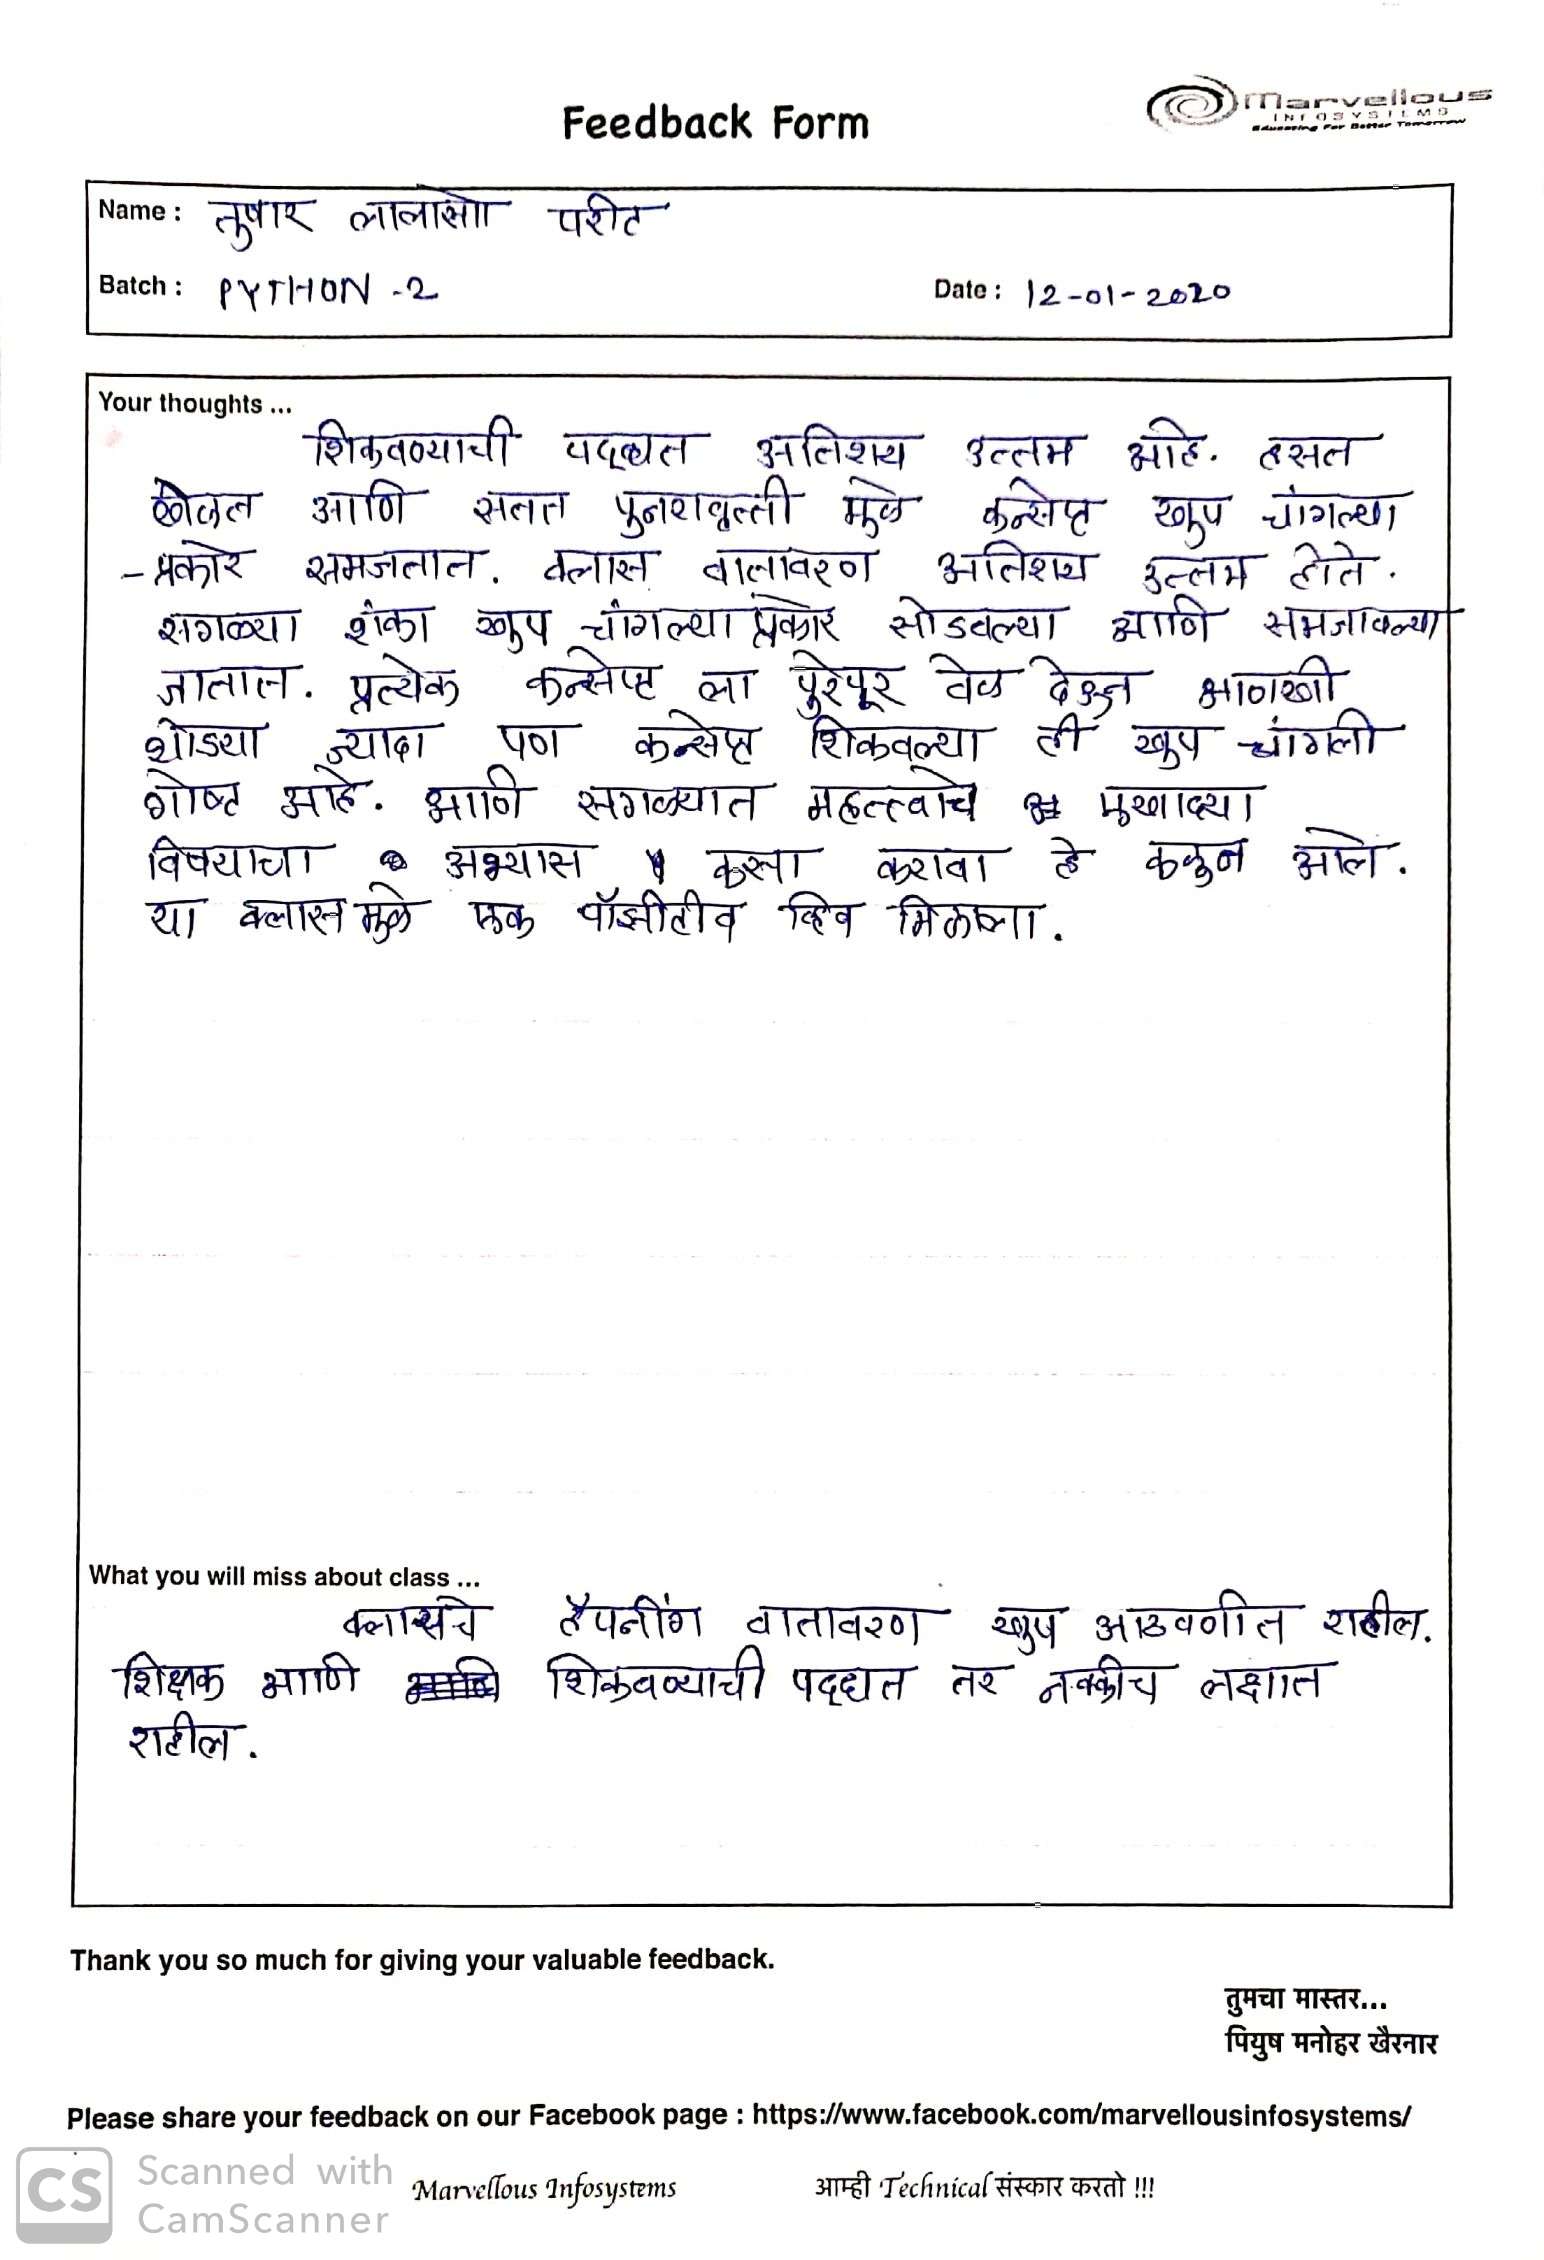 Feedback Form
Marvellous
INFOSYSTEMS
Educating For Better Tomorrow
Name : तुषार लालासो परीट
Batch : PYTHON -2 Date : 12-01-2020
Your thoughts ...
शिकवण्याची पद्ध्यत अतिशय उत्तम आहे. हसत
खेळत आणि सतत पुनरावृत्ती मुळे कन्सेप्ट खुप चांगल्या
-प्रकारे समजतात. क्लास वातावरण अतिशय उत्तम होते.
सगळ्या शंका खुप चांगल्या प्रकारे सोडवल्या आणि समजावल्या
जातात. प्रत्येक कन्सेप्ट ला पुरेपूर वेळ देऊन आणखी
थोड्या ज्यादा पण कन्सेप्ट शिकवल्या ही खुप चांगली
गोष्ट आहे. आणि सगळ्यात महत्त्वाचे
विषयाचा अभ्यास कसा करावा हे कळुन आले.
या क्लास मुळे एक पॉझीटीव व्हिव मिळाला.
What you will miss about class ...
क्लासचे हॅपनींग वातावरण खुप आठवणीत राहील.
शिक्षक आणि शिकवण्याची पद्ध्यत तर नक्कीच लक्षात
राहील.
Thank you so much for giving your valuable feedback.
तुमचा मास्तर...
पियुष मनोहर खैरनार
Please share your feedback on our Facebook page : https://www.facebook.com/marvellousinfosystems/
CS Scanned with
CamScanner
Marvellous Infosystems आम्ही Technical संस्कार करतो !!!